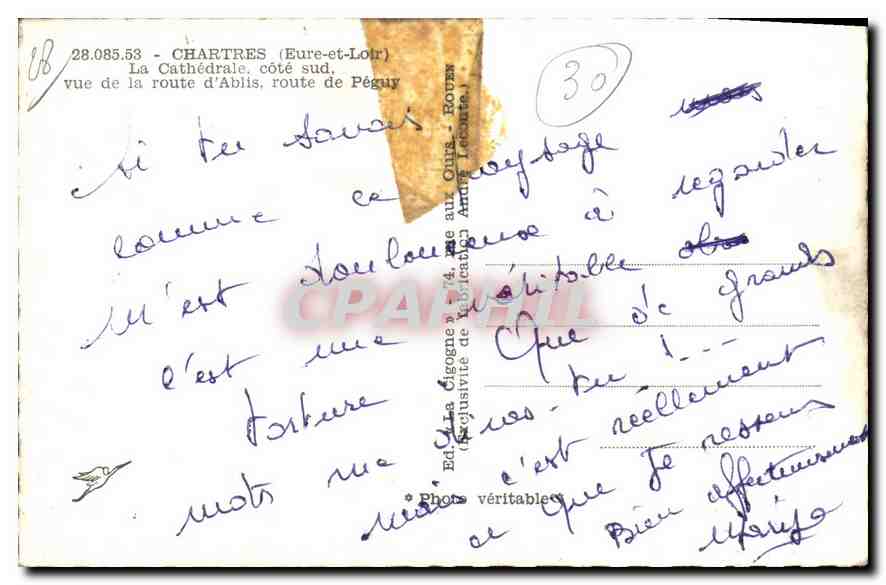 28.085.53 - CHARTRES (Eure-et-Loir)
La Cathédrale, côté sud,
vue de la route d'Ablis, route de Péguy
28
30
Si tu savais
comme ce paysage
m'est douloureux à regarder
c'est une véritable
torture. Que de grands
mots me diras-tu !...
mais c'est réellement
ce que je ressens
Bien affectueusement
Ed. « La Cigogne » - 74, rue aux Ours - ROUEN
(Exclusivité de fabrication André Leconte.)
* Photo véritable *
CPAPHIL